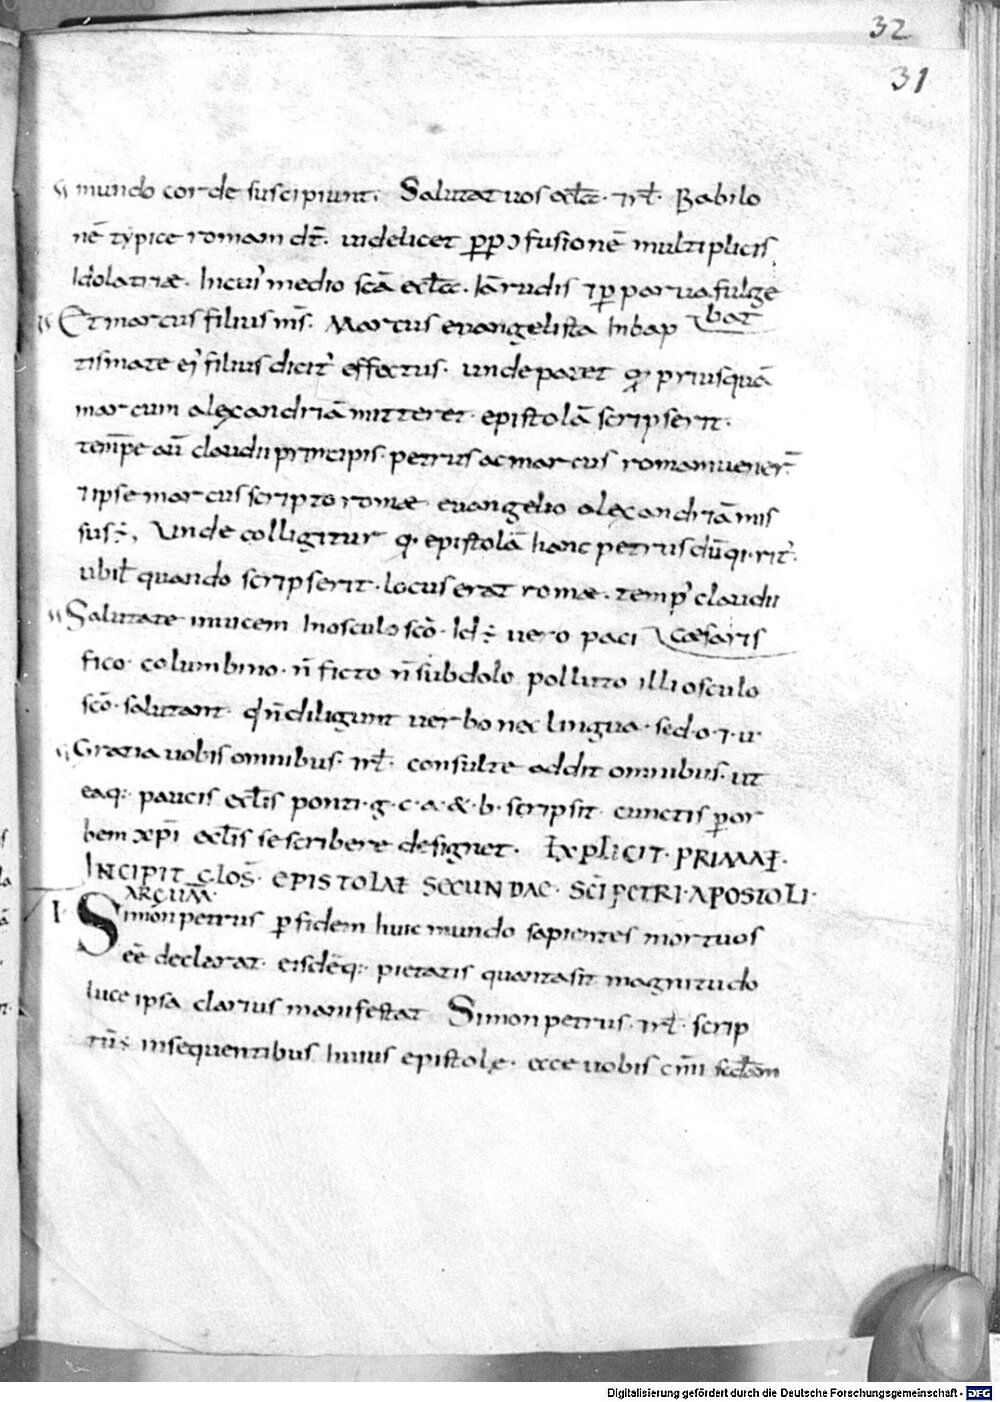 32
31
mundo corde suscipiunt. Salutat uos eccl̄a · rl̄ · Babilo
nē typice romam dr̄ · uidelicet ꝑpꝑ ɔfusionē multiplicis
Idolatriae · Incuiꝰ medio scā eccl̄a · Iā rudis ⁊ ꝑ parua fulge
bat
Et marcus filius m̄s · Marcus euangelista Inbap
tismate eiꝰ filius dicit᷑ effectus · unde patet qđ priusquā
marcum alexandriā mitteret · epistolā scripserit ·
temp̄e aū claudii principis · petrus ac marcus romam uener̄
⁊ ipse marcus scripto romae euangelio alexandriā mis
sus ÷, Unde colligitur qđ epistolā hanc petrus
ubi ł quando scripserit · locus erat romae · temp̄ claudii
caesaris
Salutate inuicem Inosculo scō · Id ÷ uero paci
fico · columbino · n̄ ficto n̄ subdolo polluto illi osculo
scō · salutant · qui n̄ diligunt uerbo nec lingua · sed · o · ⁊ · u ·
Gratia uobis omnibus · rl̄ · consulte addit omnibus · ut
eaq: paucis eccl̄is ponti · g · c · a · & · b · scripsit · cunctis ꝑ or
bem xp̄i eccl̄is se scribere designet · EXPLICIT · PRIMAE ·
INCIPIT GLOS̄ · EPISTOLAE SECUNDAE · SC̄I PETRI · APOSTOLI ·
ARGUM̄
I · Simon petrus ꝑ fidem huic mundo sapientes mortuos
eē declarat · eisdēq: pietatis quanta sit magnitudo
luce ipsa clarius manifestat Simon petrus · rl̄ · scrip
tū ÷ insequentibus huius epistolę · ecce uobis c̄mi scd̄am
Digitalisierung gefördert durch die Deutsche Forschungsgemeinschaft · DFG